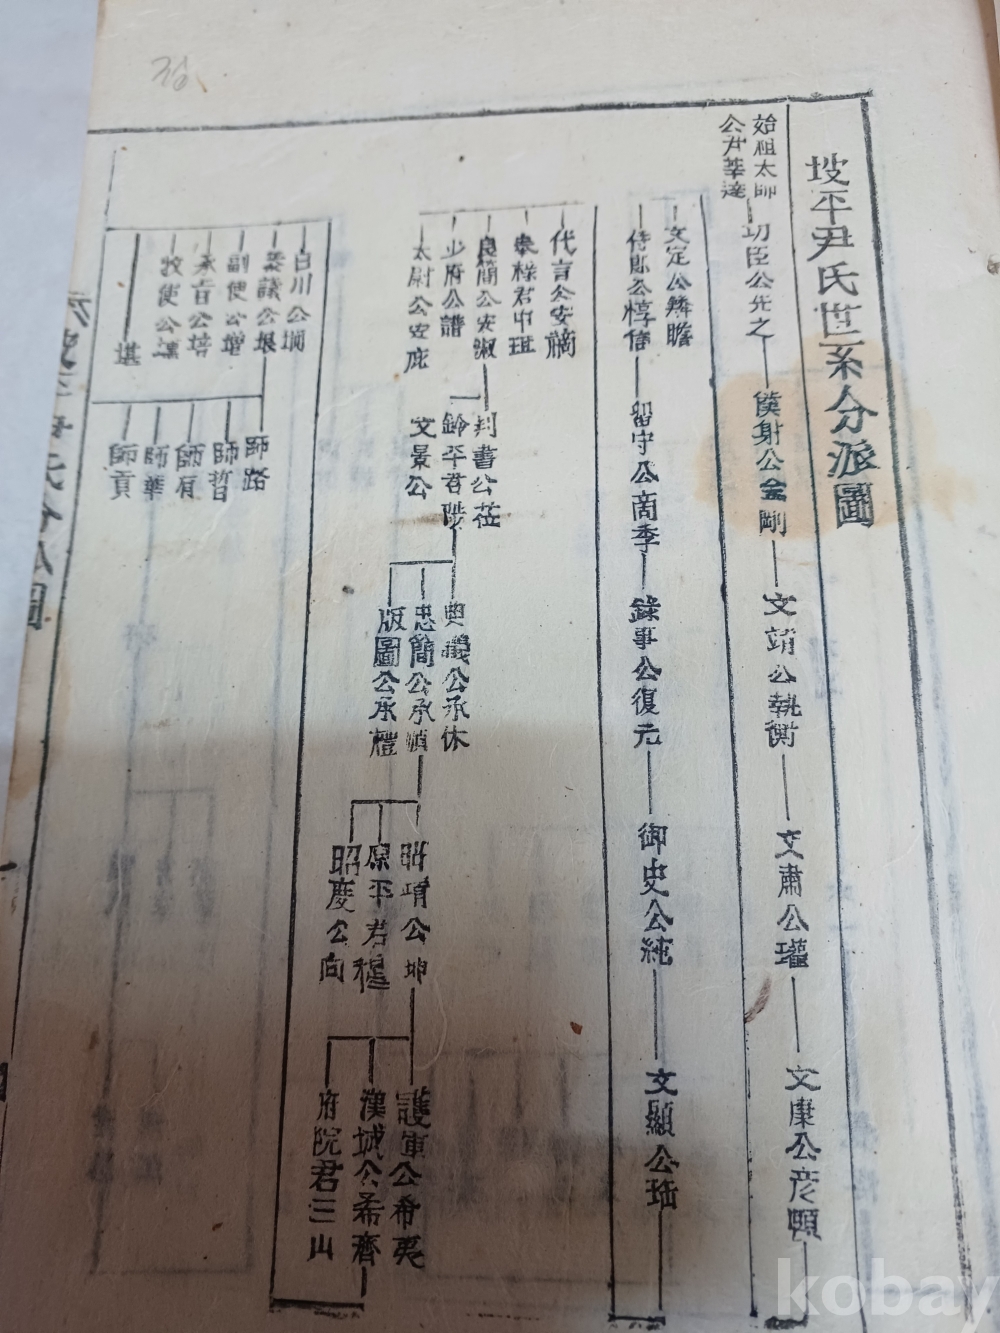 坡平尹氏世系分派圖
始祖太師
公尹莘達
功臣公先之
僕射公金剛
文靖公執衡
文肅公瓘
文康公彦頤
文定公鱗瞻
侍郎公惇信
留守公商季
錄事公復元
御史公純
文顯公珤
代言公安謫
奉祿君中琪
良簡公安淑
少府公譜
太尉公安庇
判書公莅
鈴平君陟
文景公
典儀公承休
忠簡公承順
版圖公承禮
昭靖公坤
原平君穆
昭度公向
護軍公希夷
漢城公希齊
府院君三山
白川公垌
參議公垠
副使公增
承旨公培
牧使公壕
堪
師路
師晢
師有
師華
師貢
坡平尹氏分派圖
kobay